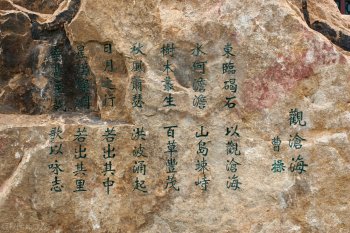 觀滄海
曹操
東臨碣石 以觀滄海
水何澹澹 山島竦峙
樹木叢生 百草豐茂
秋風蕭瑟 洪波涌起
日月之行 若出其中
星漢燦爛 若出其里
歌以咏志